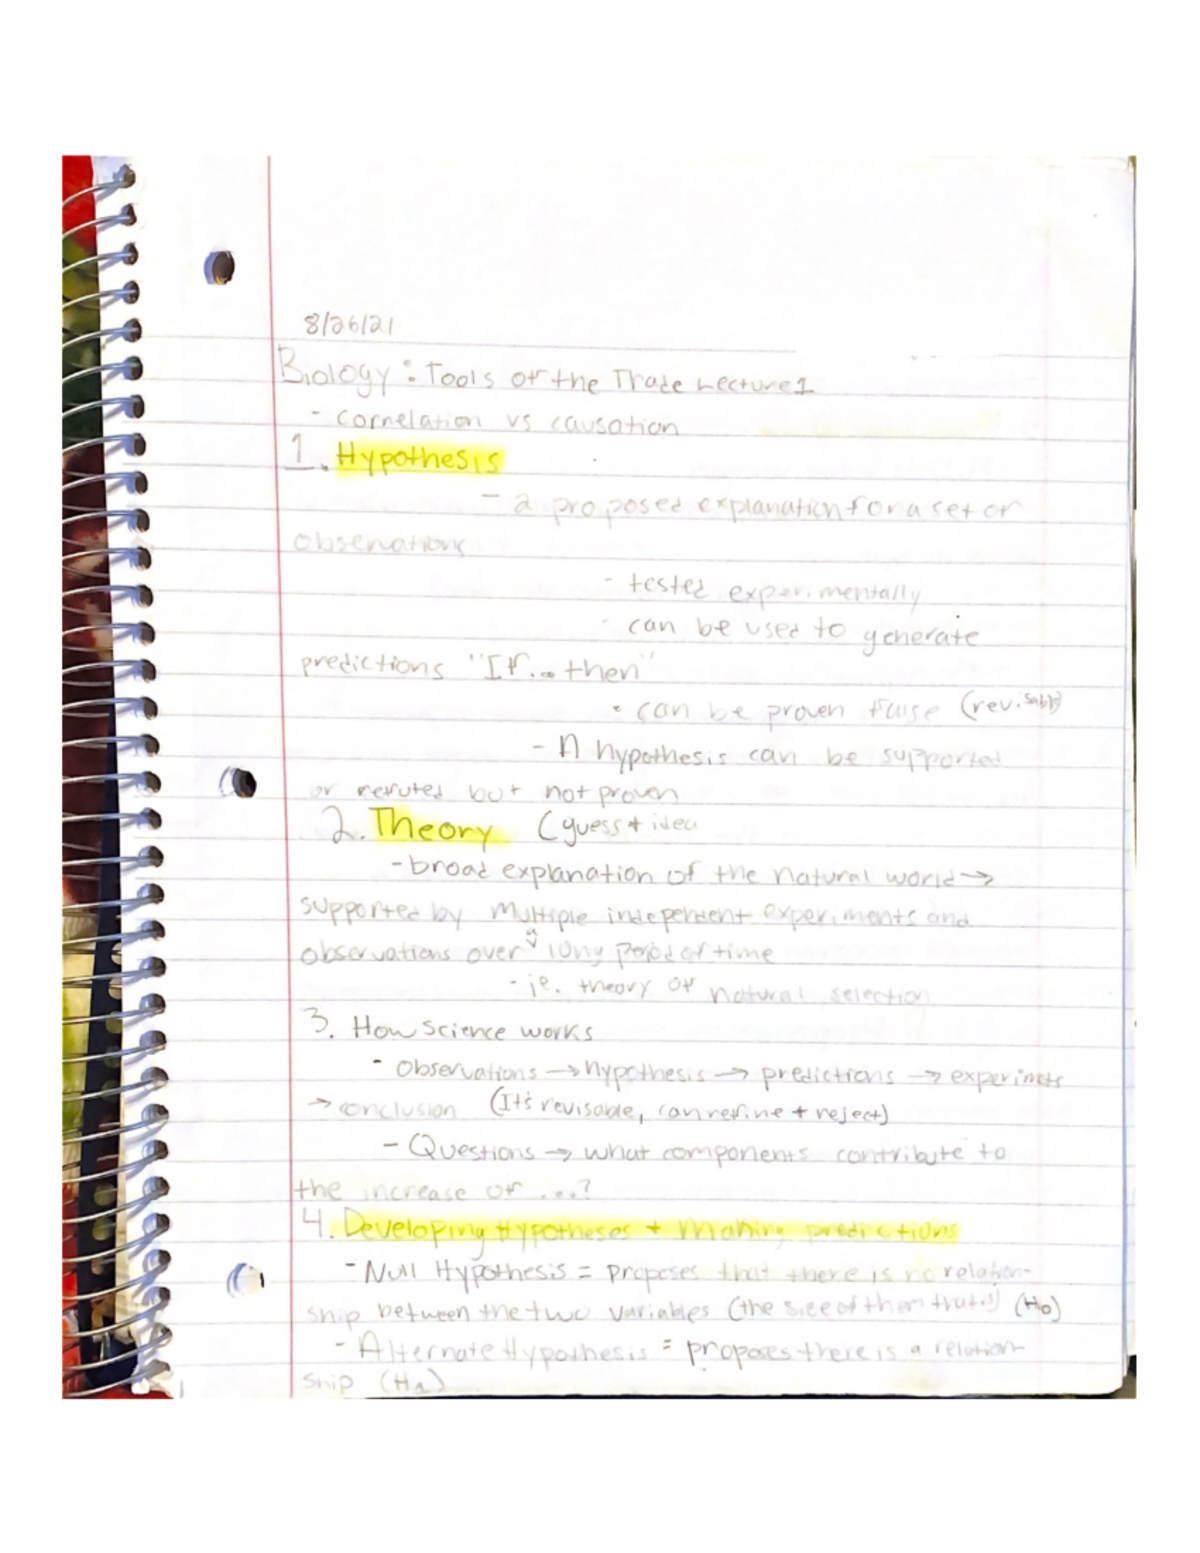 8/26/21
Biology: Tools of the Trade Lecture 1
- correlation vs causation
1. Hypothesis
- a proposed explanation for a set of
observations
- tested experimentally
- can be used to generate
predictions "If... then"
- can be proven false (revisable)
- A hypothesis can be supported
or refuted but not proven
2. Theory (guess + idea
- broad explanation of the natural world →
supported by multiple independent experiments and
observations over a long period of time
- ie. theory of natural selection
3. How science works
- Observations → hypothesis → predictions → experimets
→ conclusion (It's revisable, can refine + reject)
- Questions → what components contribute to
the increase of ...?
4. Developing Hypotheses + Making predictions
- Null Hypothesis = proposes that there is no relation-
ship between the two variables (the size of them (H0)
- Alternate Hypothesis = proposes there is a relation-
ship (Ha)